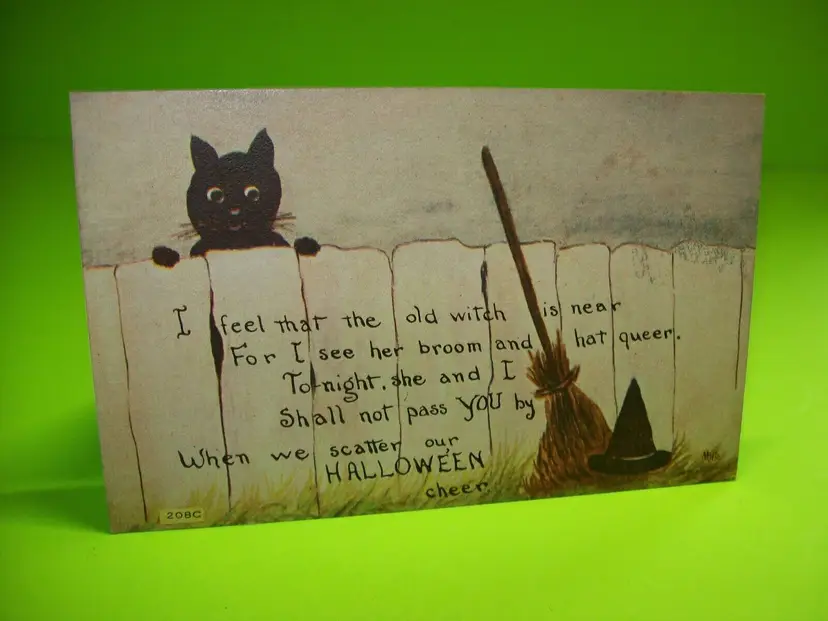 I feel that the old witch is near
For I see her broom and hat queer.
To-night, she and I
Shall not pass YOU by
When we scatter our
HALLOWEEN
cheer.
208C